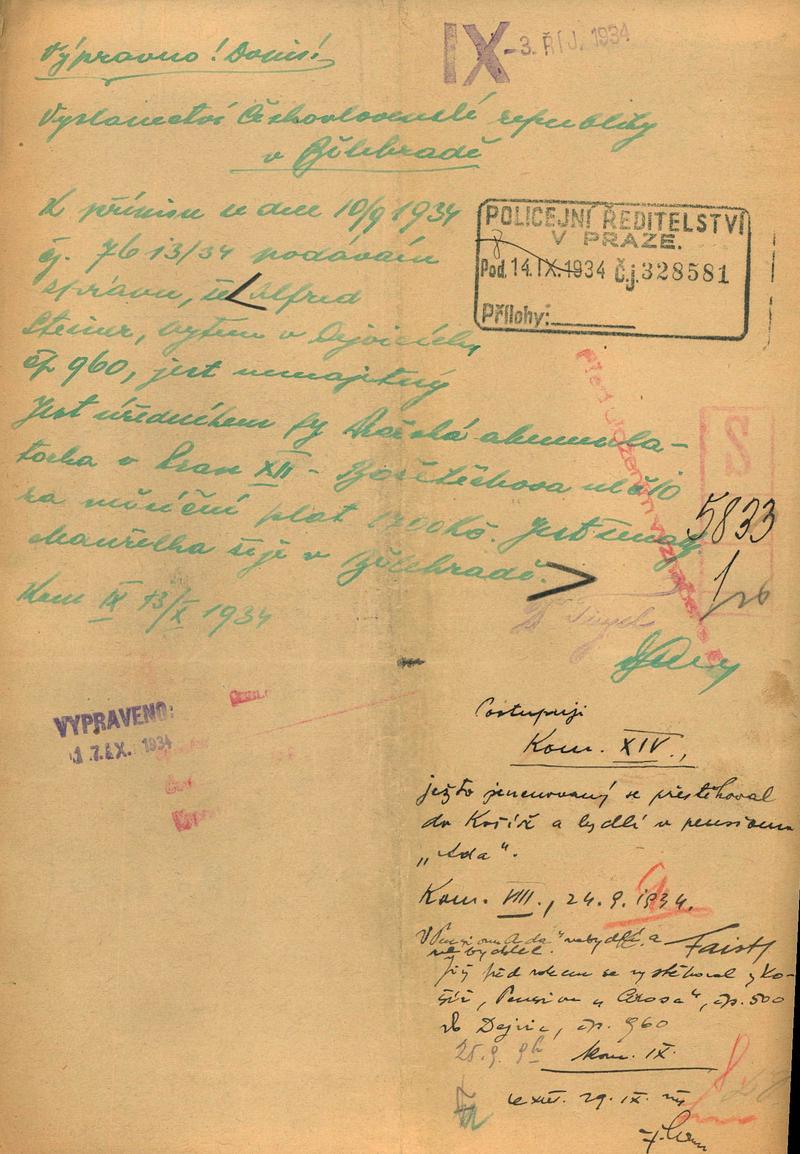 Výpravno! Doručí!
IX - 3. ŘÍJ. 1934
Vyslanectví Československé republiky
v Bělehradě
K přípisu ze dne 10/9 1934
čj. 7613/34 podávám
zprávu, že Alfred
Steiner, bytem v Dejvicích
čp 960, jest nemajetný
Jest úředníkem fy Pražská akumula-
torka v Praze XII - ul č 10
za měsíční plat 1700 Kč. Jest ženatý.
Manželka žije v Bělehradě.
Kom IX 13/X 1934
POLICEJNÍ ŘEDITELSTVÍ
V PRAZE.
Pod. 14. IX. 1934 Č.j. 328581
Přílohy:
5833
VYPRAVENO:
1934
Postupuji
Kom. XIV.,
ježto jmenovaný se přestěhoval
do Košíř a bydlí v pensionu
„Ada“.
Kom. VIII., 24. 9. 1934.
V Pensionu „Ada“ nebydlí a
nebydlel. Faistl
již před rokem se vystěhoval z Ko-
šíř, Pension „Arosa“, čp. 500
do Dejvic, čp. 960
25.9. 9h kom. IX.
29. IX.